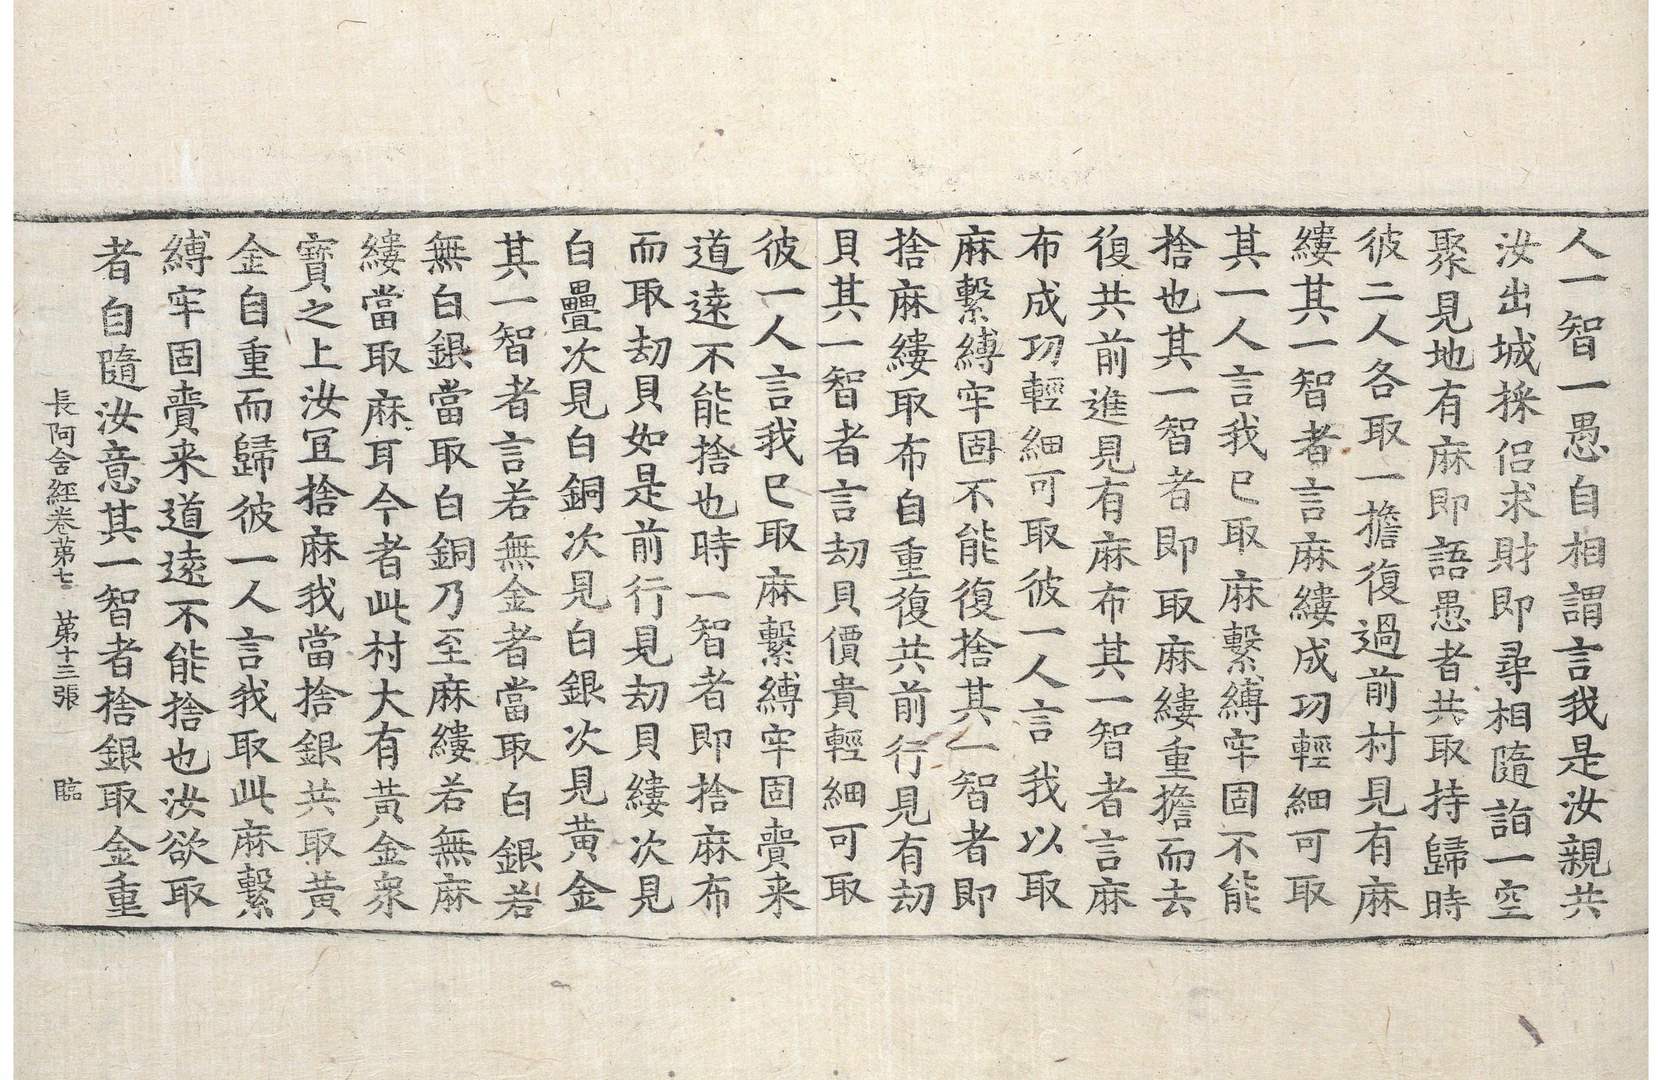 人一智一愚自相謂言我是汝親共
汝出城採侶求財即尋相隨詣一空
聚見地有麻即語愚者共取持歸時
彼二人各取一擔復過前村見有麻
縷其一智者言麻縷成功輕細可取
其一人言我已取麻繫縛牢固不能
捨也其一智者即取麻縷重擔而去
復共前進見有麻布其一智者言麻
布成功輕細可取彼一人言我以取
麻繫縛牢固不能復捨其一智者即
捨麻縷取布自重復共前行見有劫
貝其一智者言劫貝價貴輕細可取
彼一人言我已取麻繫縛牢固賷来
道遠不能捨也時一智者即捨麻布
而取劫貝如是前行見劫貝縷次見
白疊次見白銅次見白銀次見黃金
其一智者言若無金者當取白銀若
無白銀當取白銅乃至麻縷若無麻
縷當取麻耳今者此村大有黃金衆
寳之上汝冝捨麻我當捨銀共取黃
金自重而歸彼一人言我取此麻繫
縛牢固賷来道遠不能捨也汝欲取
者自隨汝意其一智者捨銀取金重
長阿含經卷第七 第十三張 臨